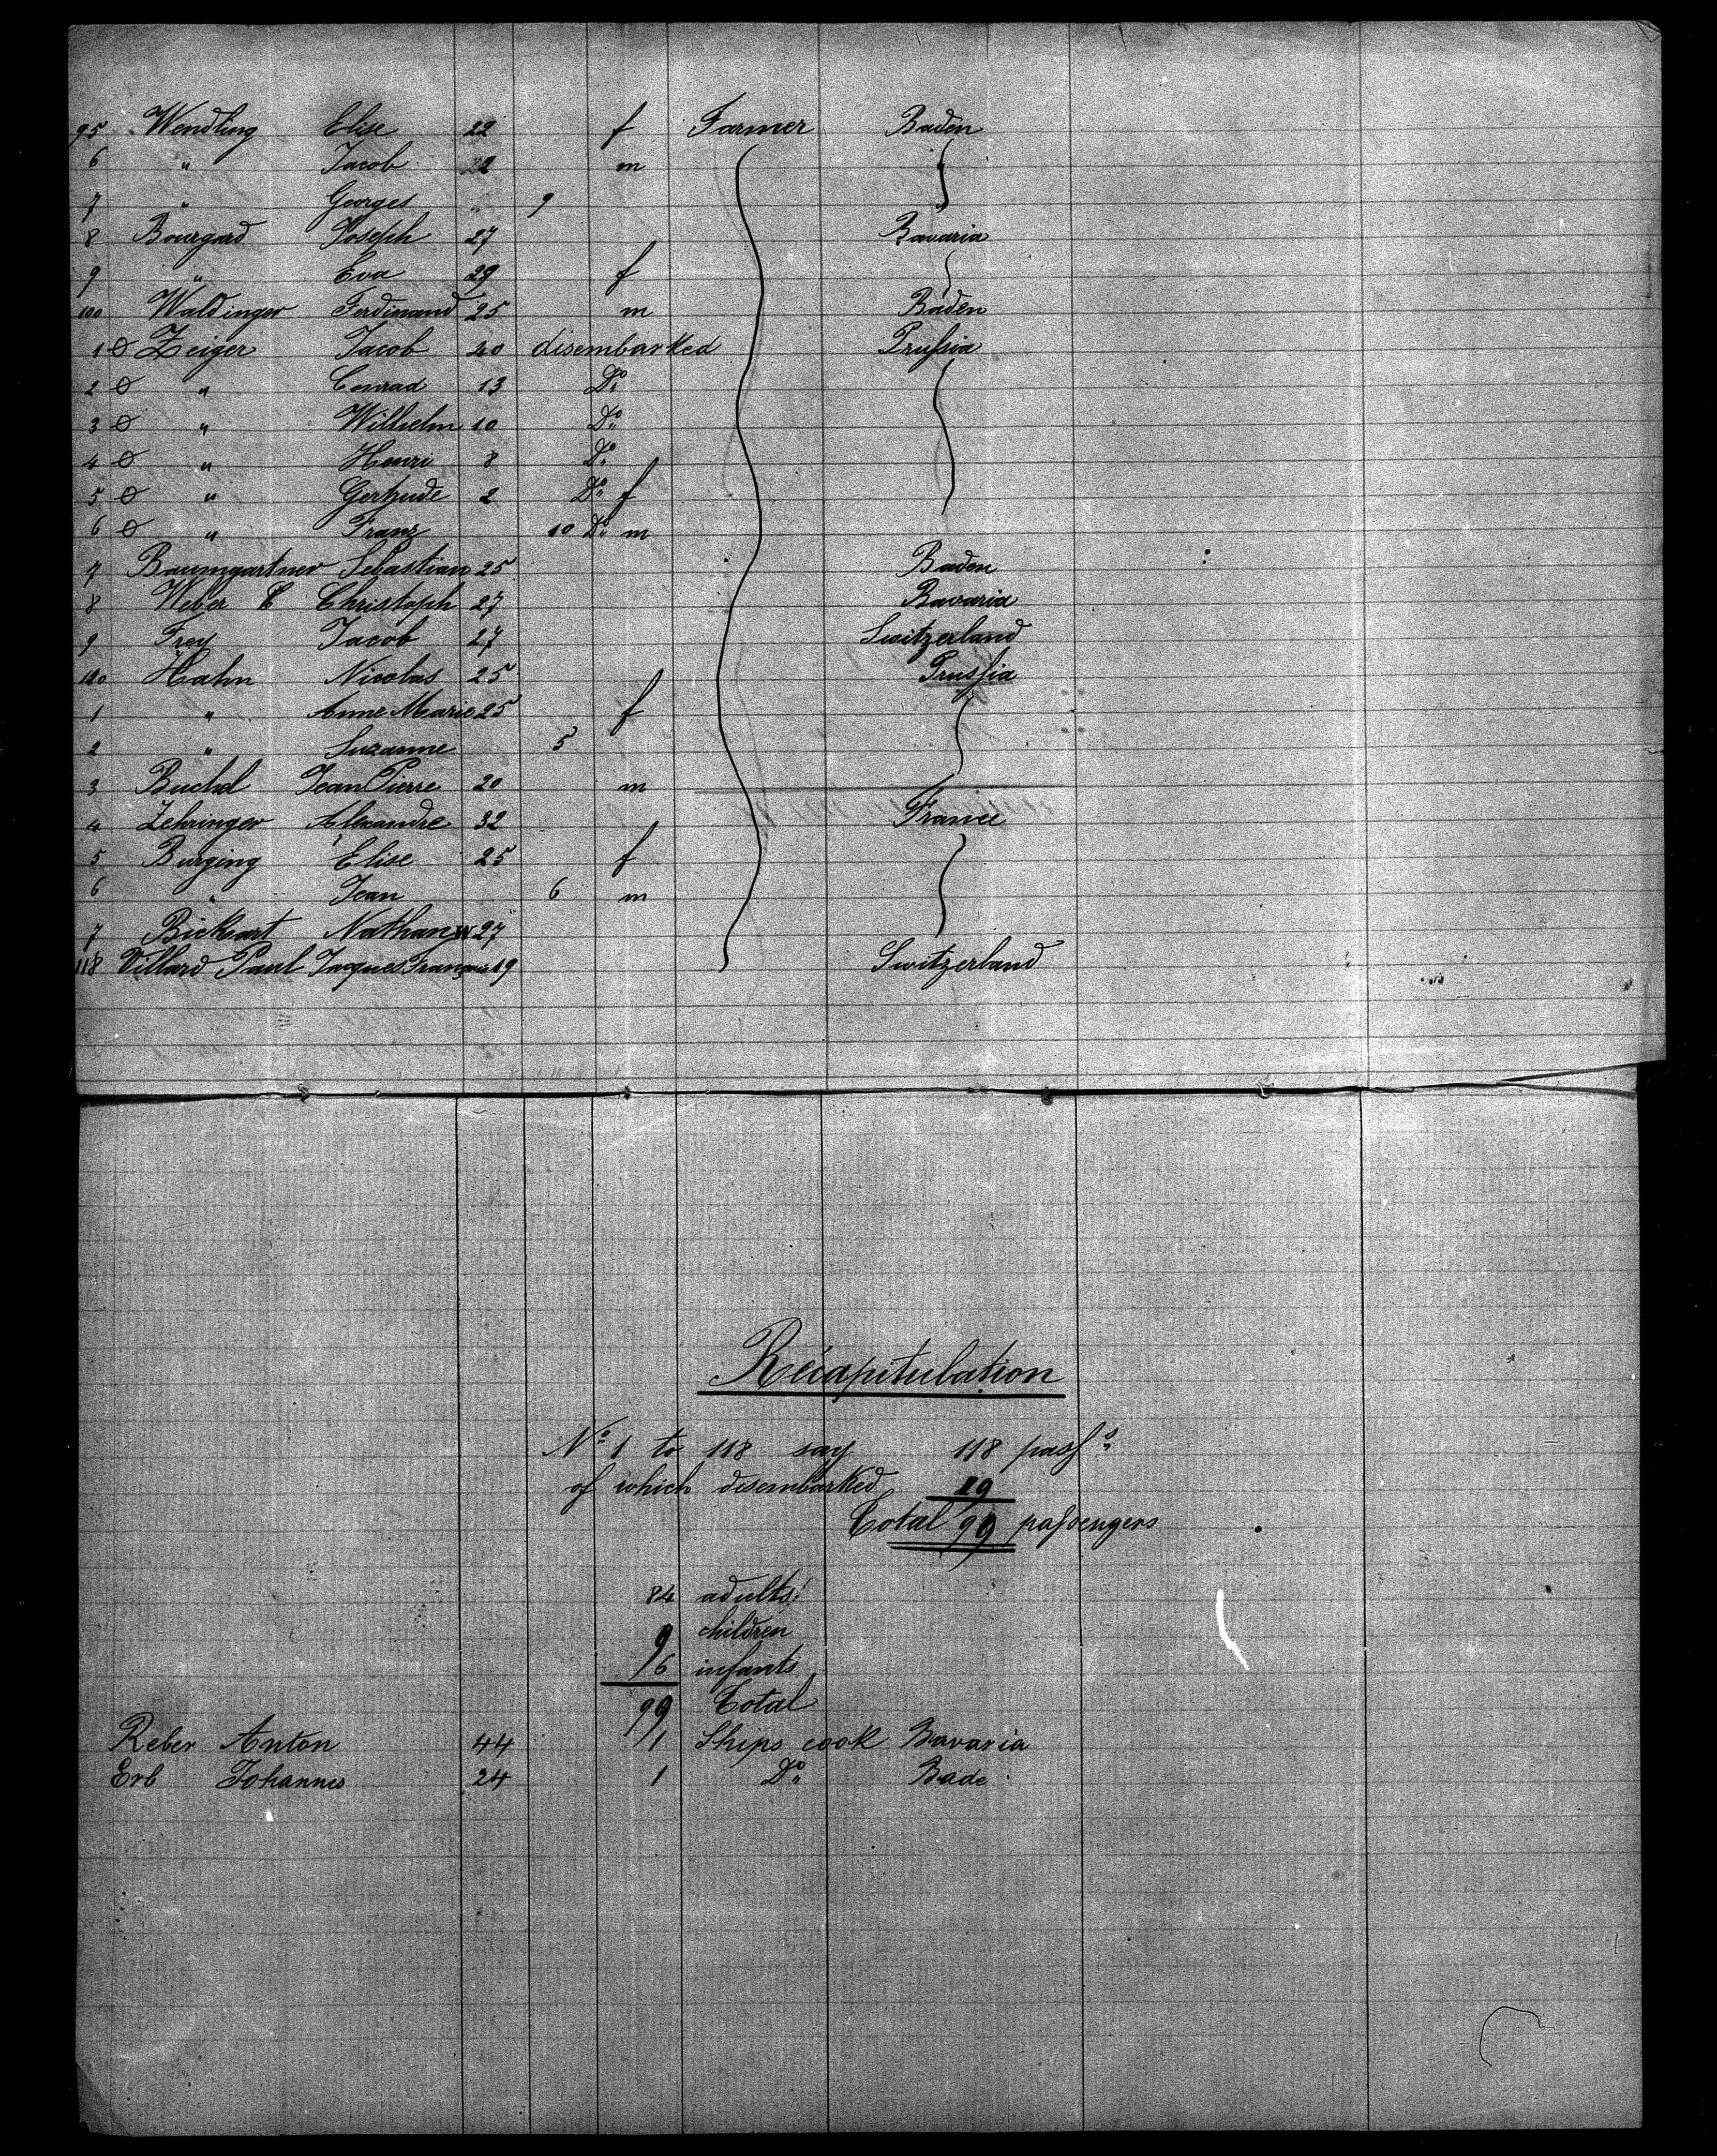 95 Wendling Elise 22 f Farmer Baden
6 " Jacob 22 m "
7 " Georges " 9 "
8 Bourgard Joseph 27 Bavaria
9 " Eva 29 f
100 Waldinger Ferdinand 25 m Baden
1 Zeiger Jacob 40 disembarked Prussia
2 " Conrad 13 Do
3 " Wilhelm 10 Do
4 " Henri 8 Do
5 " Gertrude 2 Do f
6 " Franz 10 Do m
7 Baumgartner Sebastian 25 Baden
8 Weber Christoph 27 Bavaria
9 Frey Jacob 27 Switzerland
110 Hahn Nicolas 25 Prussia
1 " Anne Marie 25 f
2 " Suzanne 5
3 Buchel Jean Pierre 20 m
4 Zehringer Alexandre 32 France
5 Burging Elise 25 f
6 " Jean 6 m
7 Bickart Nathan 27
118 Villard Paul Jacques François 19 Switzerland
Récapitulation
No 1 to 118 say 118 passs
of which disembarked 19
Total 99 passengers
84 adults
9 children
6 infants
99 Total
Reber Anton 44 1 Ships cook Bavaria
Erb Johannes 24 1 Do Bade